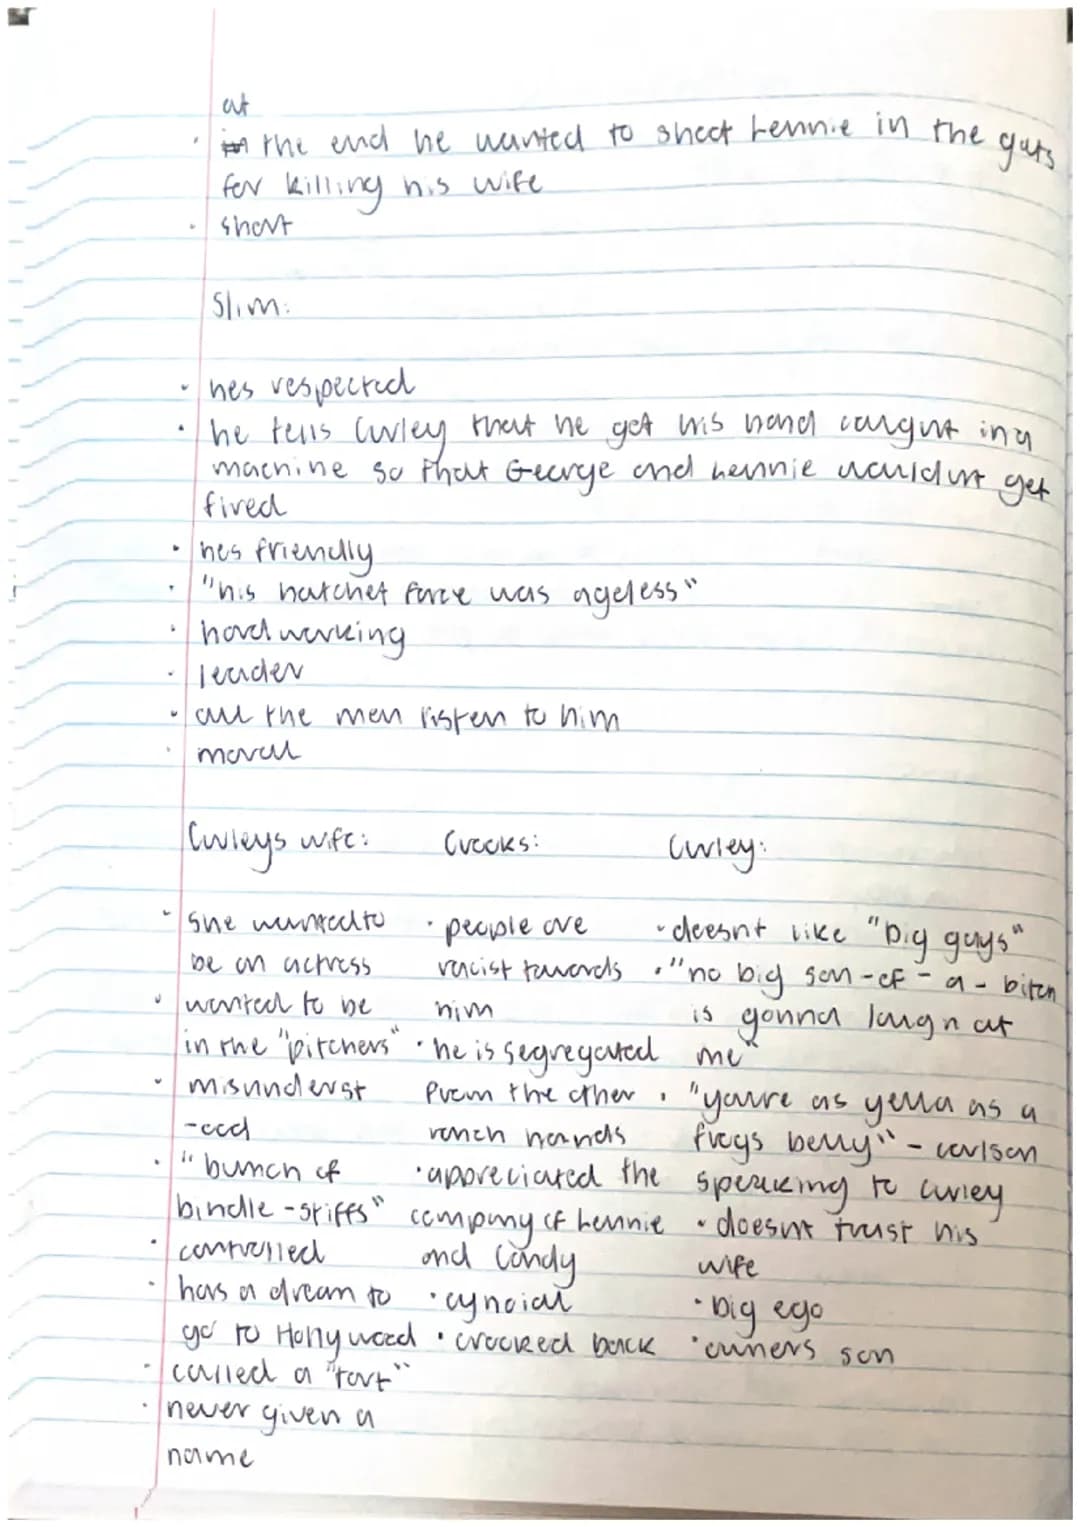 at
· the end he wanted to shoot Lennie in the guts
for killing his wife
· short
Slim:
· hes respected
· he tells Curley that he got his hand caught in a
machine so that George and Lennie wouldnt get
fired
· hes friendly
· "his hatchet face was ageless"
· hard working
· leader
· all the men listen to him
· moral
Curleys wife:
· she wanted to
be an actress
· wanted to be
in the "pitchers"
· misunderst
-ood
· "bunch of
bindle-stiffs"
· controlled
· has a dream to
go to Hollywood
· called a "tart"
· never given a
name
Crooks:
· people are
racist towards
him
· he is segregated
from the other
ranch hands
· appreciated the
company of Lennie
and Candy
· cynoial
· crooked back
Curley:
· doesnt like "big guys"
· "no big son-of-a-bitch
is gonna laugh at
me"
· "youre as yella as a
frogs belly" - carlson
speaking to curley
· doesnt trust his
wife
· big ego
· owners son